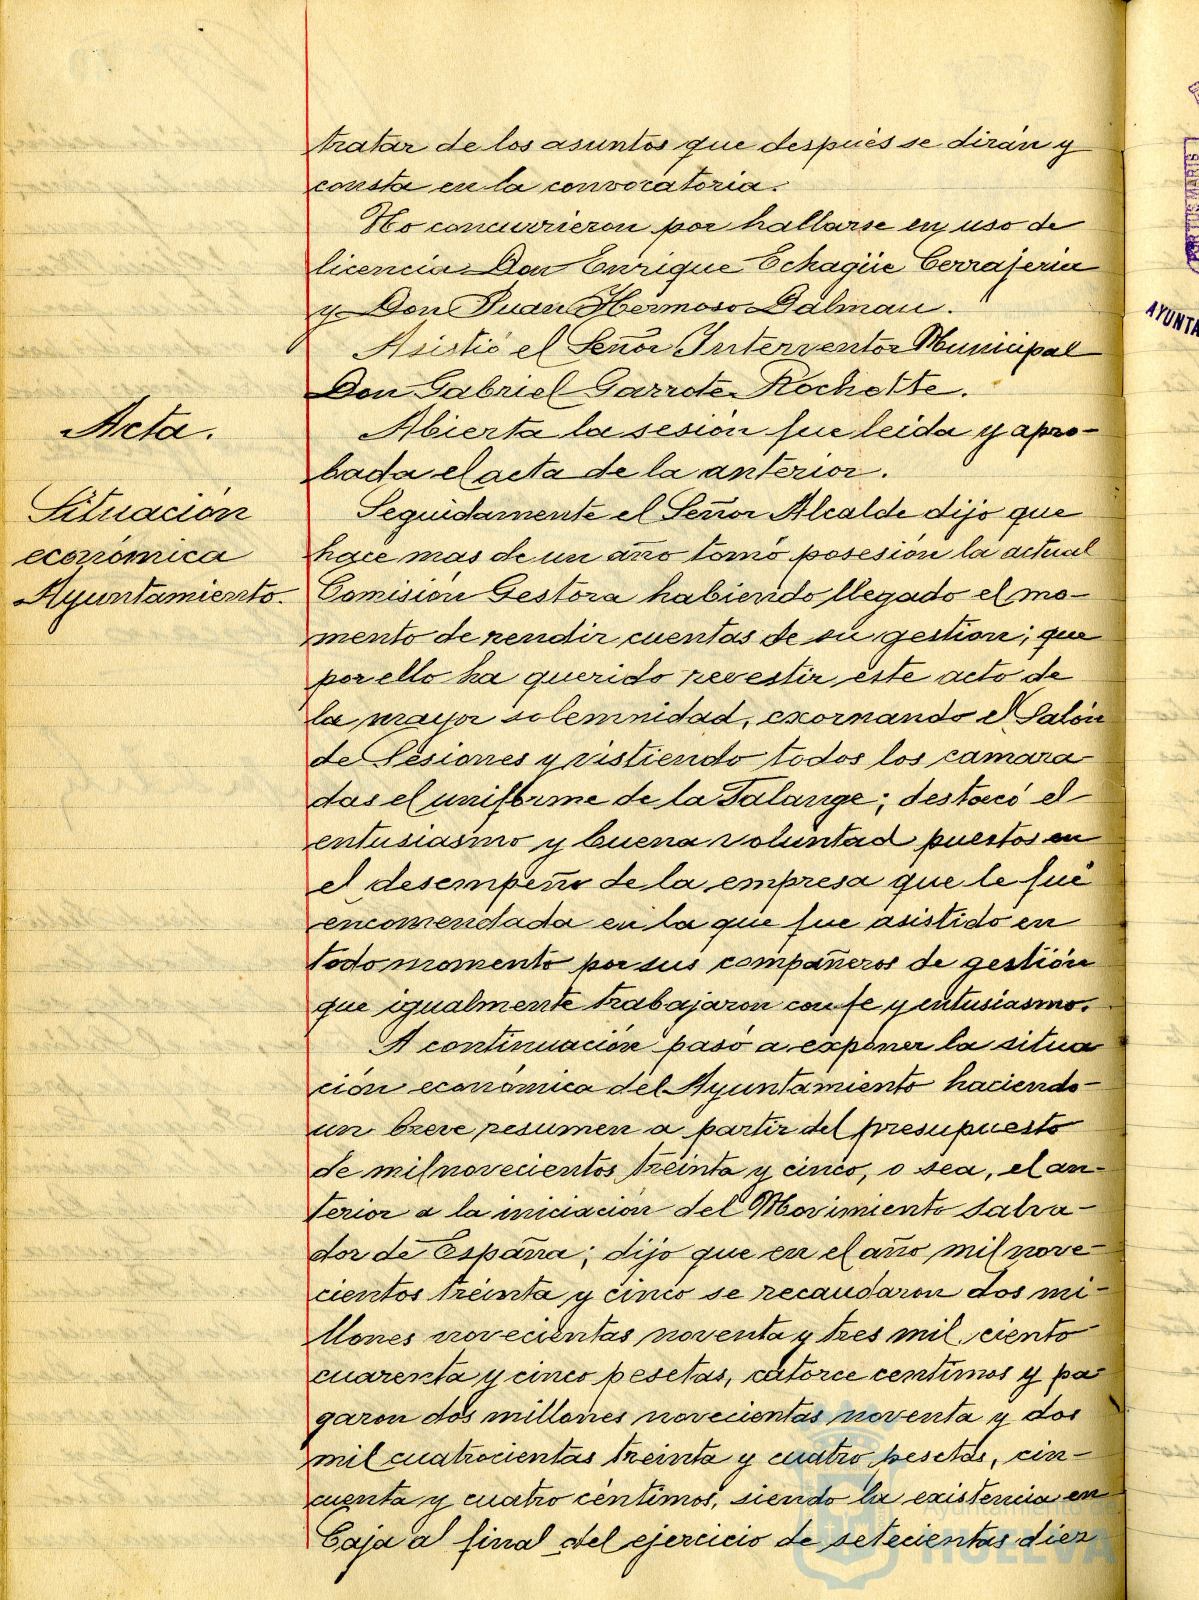 tratar de los asuntos que después se dirán y
consta en la convocatoria.
No concurrieron por hallarse en uso de
licencia Don Enrique Echagüe Cerrajería
y Don Juan Hermoso Dalmau.
Asistió el Señor Interventor Municipal
Don Gabriel Garrote Rochette.
Acta.
Abierta la sesión fue leida y apro-
bada el acta de la anterior.
Situación
económica
Ayuntamiento.
Seguidamente el Señor Alcalde dijo que
hace mas de un año tomó posesión la actual
Comisión Gestora habiendo llegado el mo-
mento de rendir cuentas de su gestion; que
por ello ha querido revestir este acto de
la mayor solemnidad, exornando el Salón
de Sesiones y vistiendo todos los camara-
das el uniforme de la Falange; destacó el
entusiasmo y buena voluntad puestos en
el desempeño de la empresa que le fué
encomendada en la que fue asistido en
todo momento por sus compañeros de gestión
que igualmente trabajaron con fe y entusiasmo.
A continuación pasó a exponer la situa
ción económica del Ayuntamiento haciendo
un breve resumen a partir del presupuesto
de mil novecientos treinta y cinco, o sea, el an-
terior a la iniciación del Movimiento Salva-
dor de España; dijo que en el año mil nove-
cientos treinta y cinco se recaudaron dos mi-
llones novecientas noventa y tres mil ciento
cuarenta y cinco pesetas, catorce centimos y pa-
garon dos millones novecientas noventa y dos
mil cuatrocientas treinta y cuatro pesetas, cin-
cuenta y cuatro céntimos, siendo la existencia en
Caja al final del ejercicio de setecientas diez
Ayuntamiento de
HUELVA
PORTUS MARIS
AYUNTA